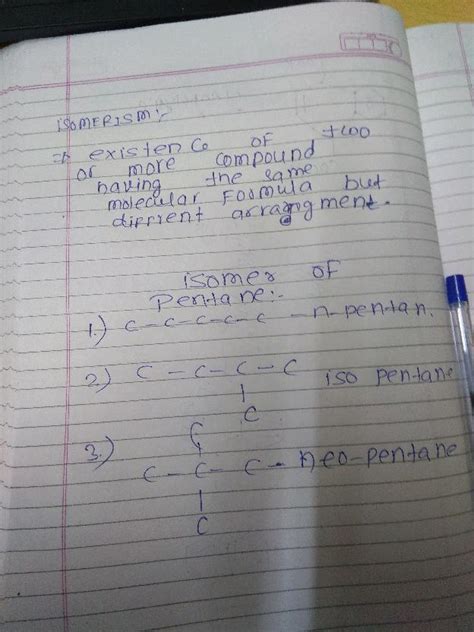 ISOMERISM:-
⇒ existence of too
or more compound
having the same
molecular Foomula but
diffrent arrangment.
isomer OF
Pentane:-
1.) C-C-C-C-C -n-pentan.
2) C-C-C-C iso pentane
|
C
C
|
3.) C-C-C- neo-pentane
|
C